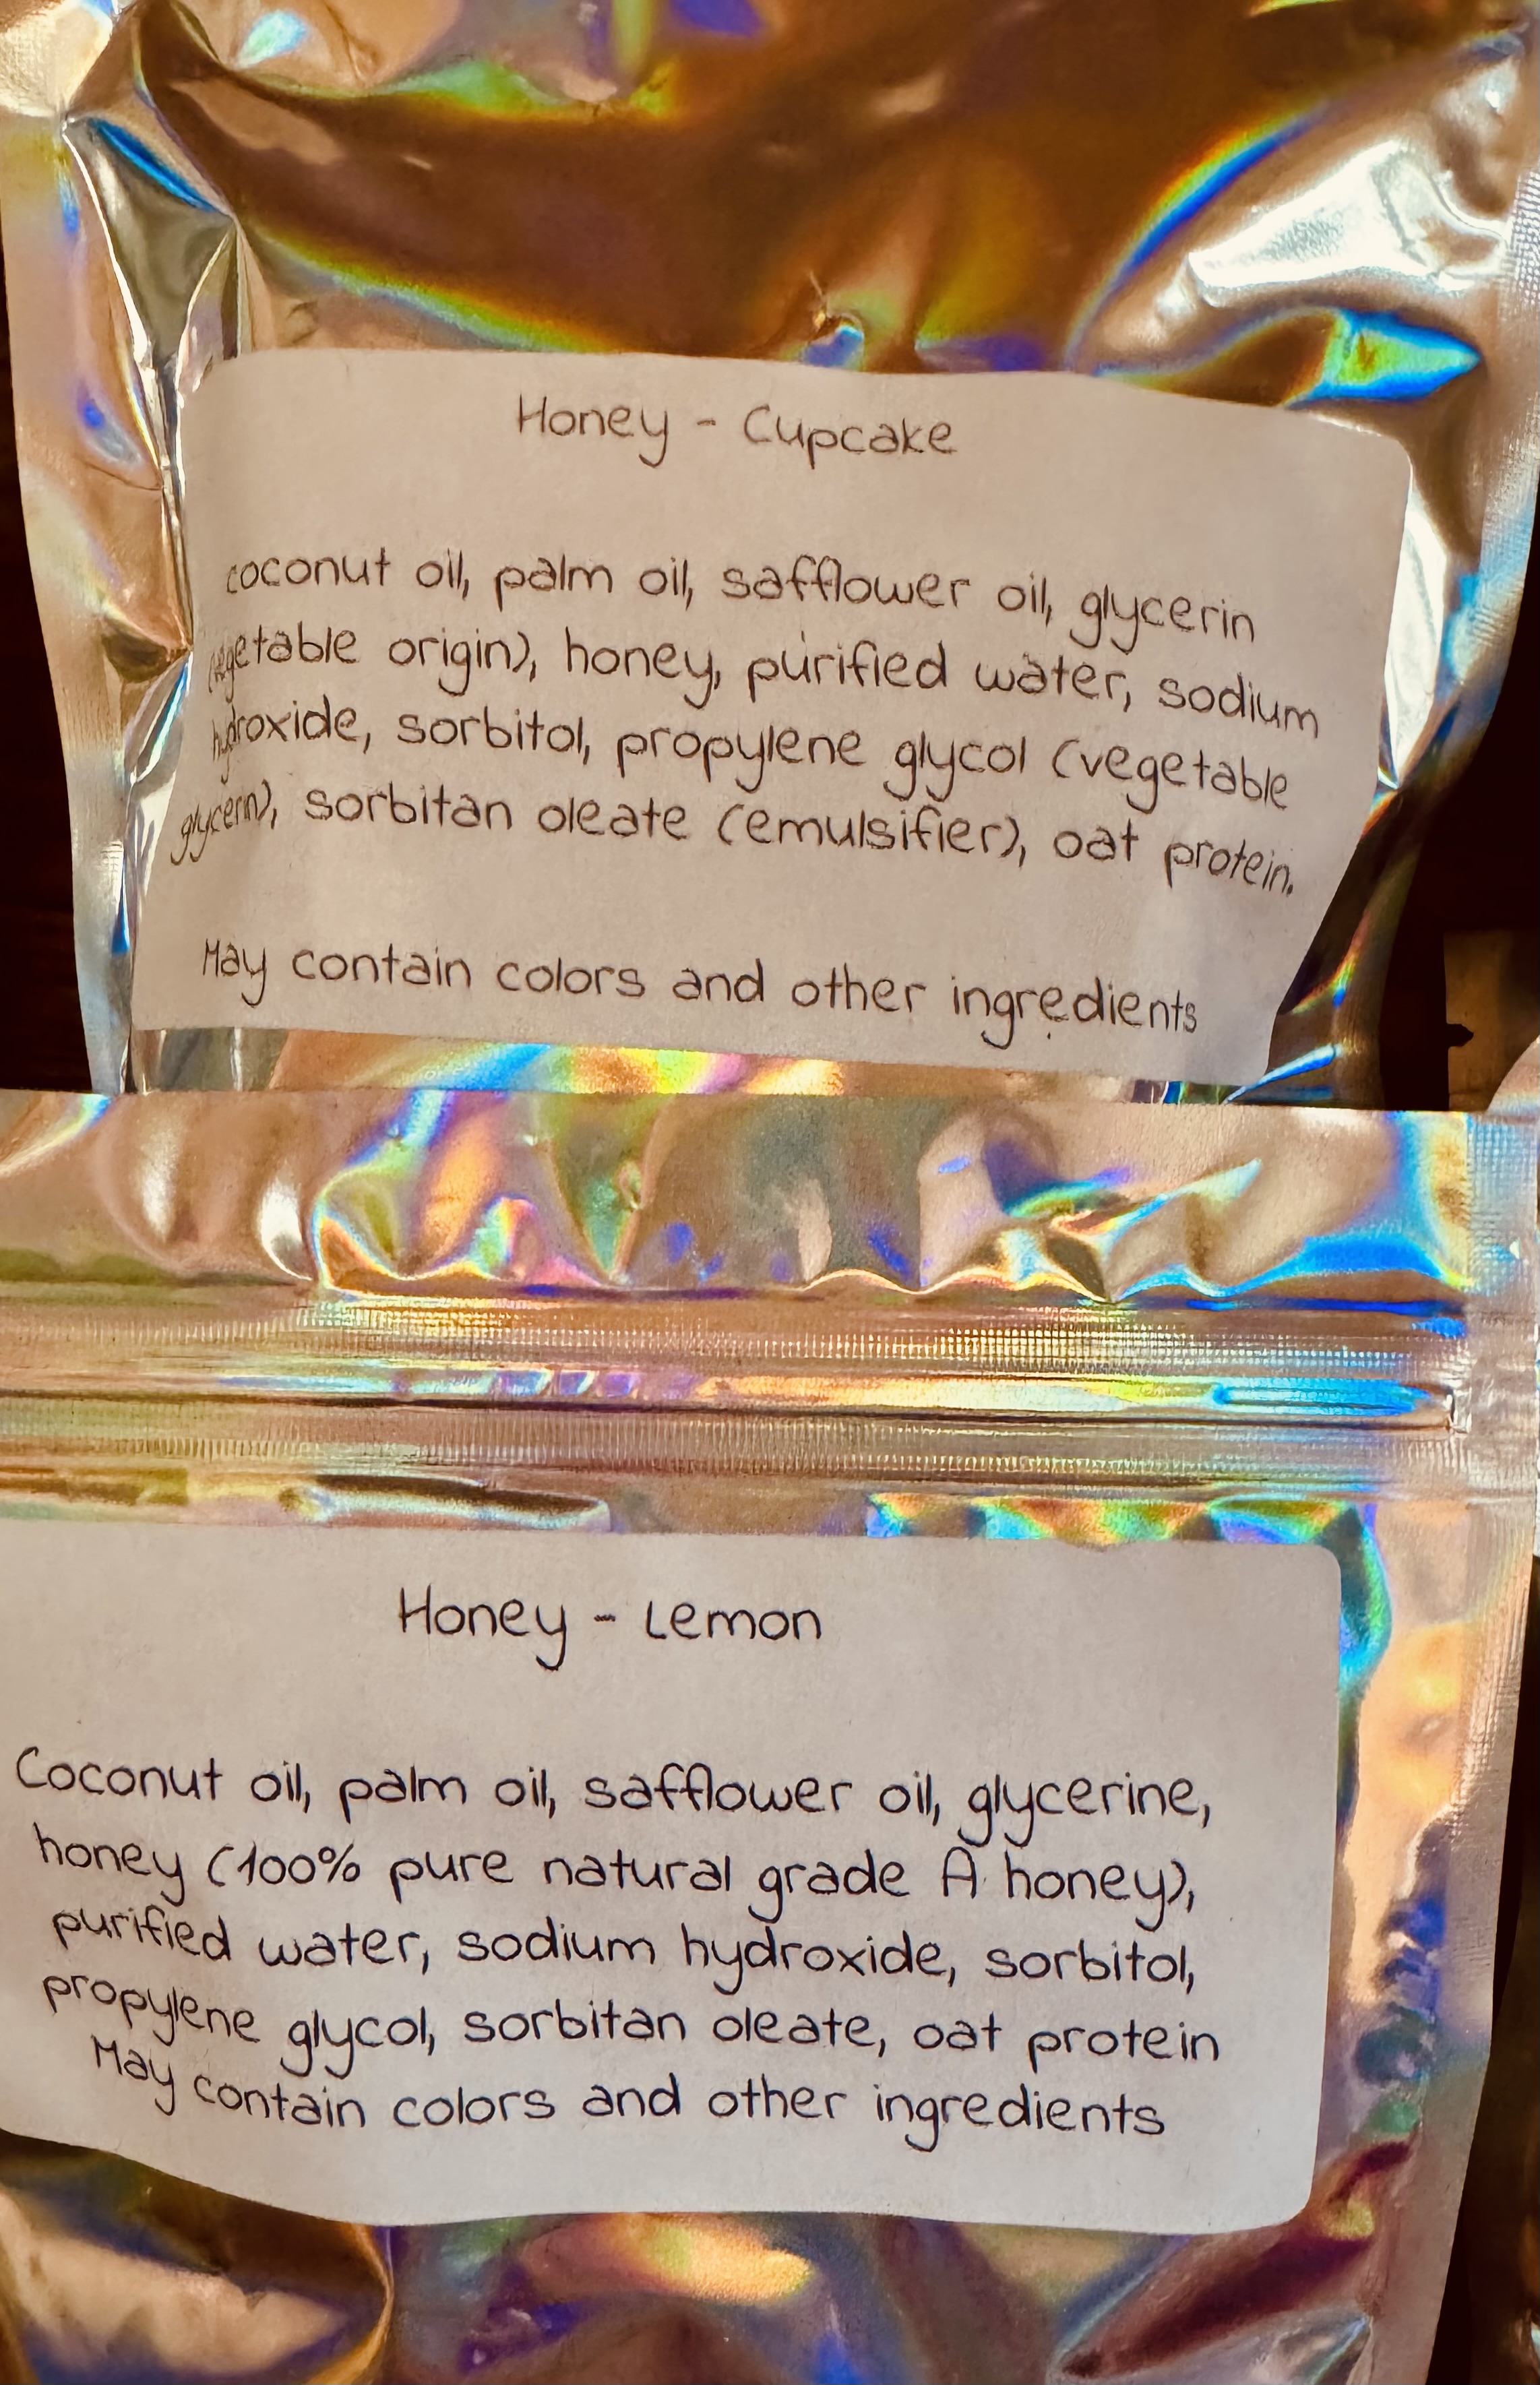 Honey - Cupcake
coconut oil, palm oil, safflower oil, glycerin
(vegetable origin), honey, purified water, sodium
hydroxide, sorbitol, propylene glycol (vegetable
glycerin), sorbitan oleate (emulsifier), oat protein.
May contain colors and other ingredients
Honey - Lemon
Coconut oil, palm oil, safflower oil, glycerine,
honey (100% pure natural grade A honey),
purified water, sodium hydroxide, sorbitol,
propylene glycol, sorbitan oleate, oat protein
May contain colors and other ingredients